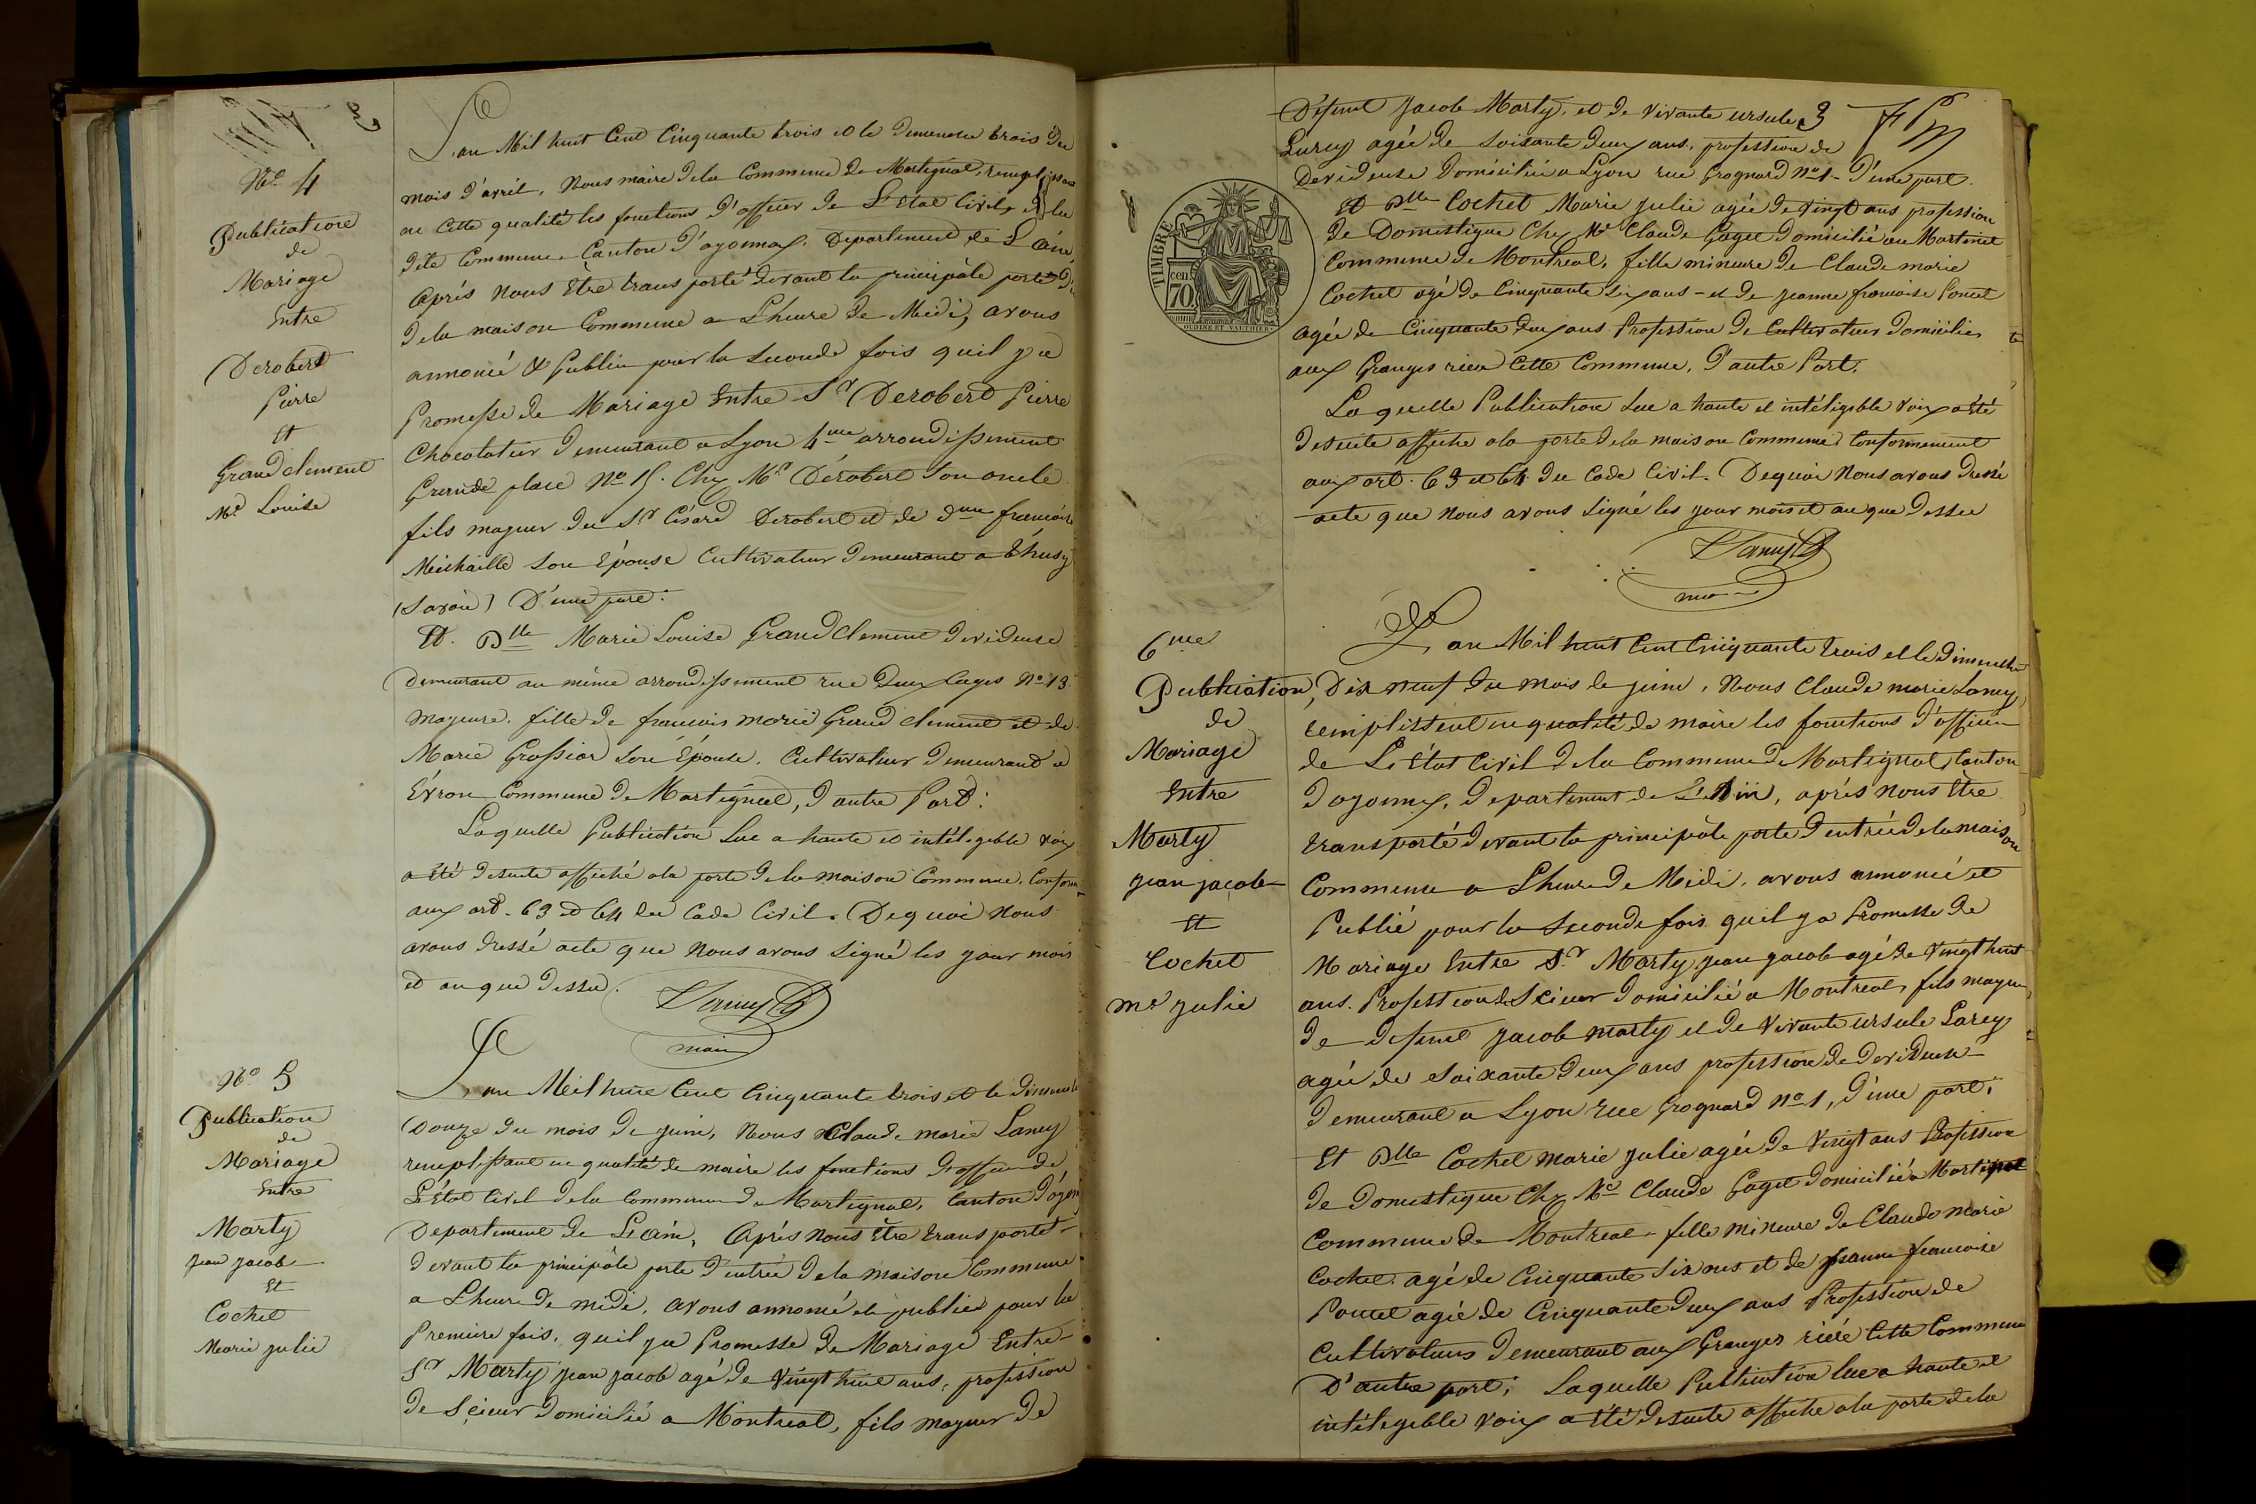 2
N° 4
Publication
de
Mariage
Entre
Derobert
Pierre
Et
Grandclement
Me Louise
L'an Mil huit Cent Cinquante trois et le dimanche trois du
mois d'avril, Nous maire de la Commune de Martignat, remplissant
en cette qualité les fonctions d'officier de L'Etat Civil, de la
dite Commune Canton d'ayonnax. Departement de L'ain
Aprés nous Etre transporté devant la principàle porte d'
de la maison Commune a L'heure de Midi, avons
annoncé & Publiée pour la seconde fois quil y a
Promesse de Mariage Entre Sr Derobert Pierre
Chocolatier demeurant a Lyon 4me arrondissement
Grande place No 15. Chez Mr Dérobert son oncle
fils mageur du Sr Césard Derobert et de dme francoise
Meihaille son Epouse Cultivateur demeurant a Thusy
(Savoie) D'une part.
Et. Dlle Marie Louise Grandclement devideuse
demeurant au même arrondissement rue deux Cages No 13.
mageure. fille de francois marie Grandclement et de
Marie Grossiard son Epouse. Cultivateur demeurant a
Evron Commune de Martignat, d'autre Part.
Laquelle Publication Lue a haute et intélegible voix
a été desuite affiché a la porte de la maison Commune. Conform
aux art. 63 et 64 du Code Civil. De quoi nous
avons dressé acte que nous avons signé les jour mois
et an que dessu.
Lancy
maire
No 5
Publication
de
Mariage
Entre
Marty
jean jacob
Et
Cochet
Marie julie
L'an Mil huit Cent Cinquante trois et le dimanche
Douze du mois de juin, Nous Claude marie Lancy
remplissant en qualité de maire les fonctions d'officier de
L'État Civil de la Commune de Martignat, Canton d'ayon
Departement de L'ain, Aprés nous Etre transporté
devant la principàle porte d'entrée de la maison Commune
a L'heure de midi, avons annoncé et publiée pour la
Premiere fois, quil y a Promesse de Mariage Entre
Sr Marty jean jacob agé de Vingt huit ans, profession
de Scieur domicilié a Montreal, fils mageur de
3
Défunt Jacob Marty, et de vivante ursule
Larey agée de soixante deux ans, profession de
Devideuse domiciliée a Lyon rue Grognard No 1 - D'une part.
Et Dlle Cochet Marie julie agée de vingt ans profession
de Domestique Chez Mr Claude Gaget domicilié au Martinet
Commune de Montreal, fille mineure de Claude marie
Cochet agé de Cinquante six ans - et de jeanne francoise Poncet
agée de Cinquante deux ans Profession de Cultivateurs domiciliés
aux Granges riere Cette Commune, D'autre Part.
Laquelle Publication Lue a haute et intéligible voix a été
desuite affiche a la porte de la maison Commune Conformement
aux art. 63 et 64 du Code Civil. Dequoi Nous avons dressé
acte que nous avons signé les jour mois et an que dessu
Lancy
TIMBRE
cen
70
OUDINE ET VAUTHIER
6me
Publication
de
Mariage
Entre
Marty
jean jacob
Et
Cochet
me julie
L'an Mil huit Cent Cinquante trois et le dimanche
Dix neuf du mois de juin, Nous Claude marie Lancy
remplissent en qualité de maire les fonctions d'officier
de L'Etat Civil de la Commune de Martignat, Canton
d'ayonnax, departement de L'Ain, aprés nous Etre
transporté devant la principàle porte d'entrée de la maison
Commune a L'heure de Midi, avons annoncé et
Publié pour la seconde fois quil y a Promesse de
Mariage Entre Sr Marty jean jacob agé de Vingt huit
ans. Profession de Scieur domicilié a Montreal, fils mageur
de defunt jacob marty et de Vivante ursule Larey
agée de soixante deux ans profession de devideuse
demeurant a Lyon rue Grognard no 1, D'une part.
Et Dlle Cochet marie julie agée de Vingt ans Profession
de Domestique Chez Mr Claude Gaget domicilié a
Commune de Montreal - fille mineure de Claude marie
Cochet. agé de Cinquante six ans et de jeanne francoise
Poncet agée de Cinquante deux ans Profession de
Cultivateurs demeurant aux Granges riére Cette Commune
D'autre part; Laquelle Publication lue a haute et
intélegible voix a été desuite affiche a la porte de la